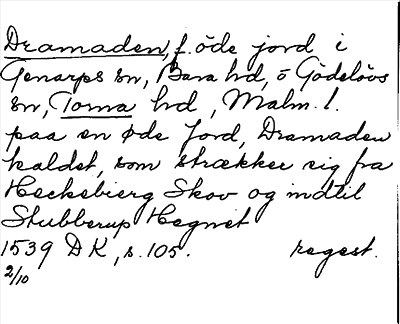 Dramaden, f. öde jord i
Genarps sn, Bara hd, o Gödelövs
sn, Torna hd, Malm. l.
paa en øde Jord, Dramaden
kaldet, som strækker sig fra
Heckebierg Skov og indtil
Stubberup Hegnet
1539 DK, s. 105. regest.
2/10